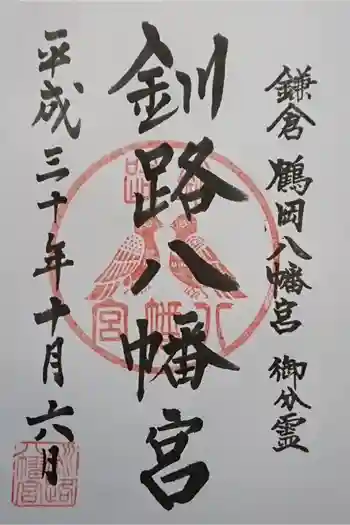 鎌倉 鶴岡八幡宮 御分霊
釧路八幡宮
平成三十年十月六月